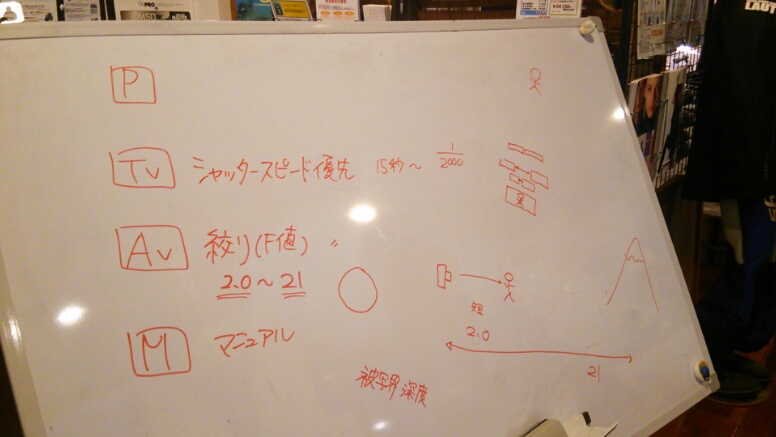 P
Tv シャッタースピード優先 15秒～ 1/2000
Av 絞り(F値) 〃
2.0～21
M マニュアル
短
2.0
21
被写界深度